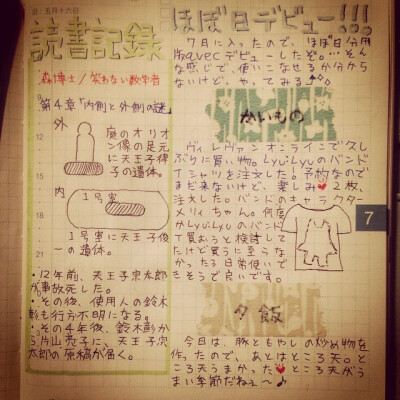 旧：五月十六日
読書記録
森博士/笑わない数学者
第4章「内側と外側の謎」
外
庭のオリオ
ン像の足元
に天王子律
子の遺体。
内
1号室
1号室に天王子俊
一の遺体。
・12年前、天王子宗太郎
が事故死した。
・その後、使用人の鈴木
彰も行方不明になる。
・その4年後、鈴木彰か
ら片山亮子に、天王子宗
太郎の原稿が届く。
ほぼ日デビュー!!!
7月に入ったので、ほぼ日分冊
版avecデビューしたぞ。…そん
な感じで、使いこなせるか分から
ないけど、やってみる♪。
かいもの
ヴィレヴァンオンラインで久し
ぶりに買い物。LyuːLyuのバンド
Tシャツを注文した!予約なので
まだ来ないけど、楽しみ♥2枚、
注文した。バンドのキャラクター
メリィちゃん。何度
かLyuːLyuのバンT
買おうと検討して
たけど買うに至らな
かったう日常使いで
きそうで良いです。
7
夕飯
今日は、豚ともやしの炒め物を
作ったので、あとはところ天。と
ころ天うまかった♥ところ天がう
まい季節だねぇ〜♪